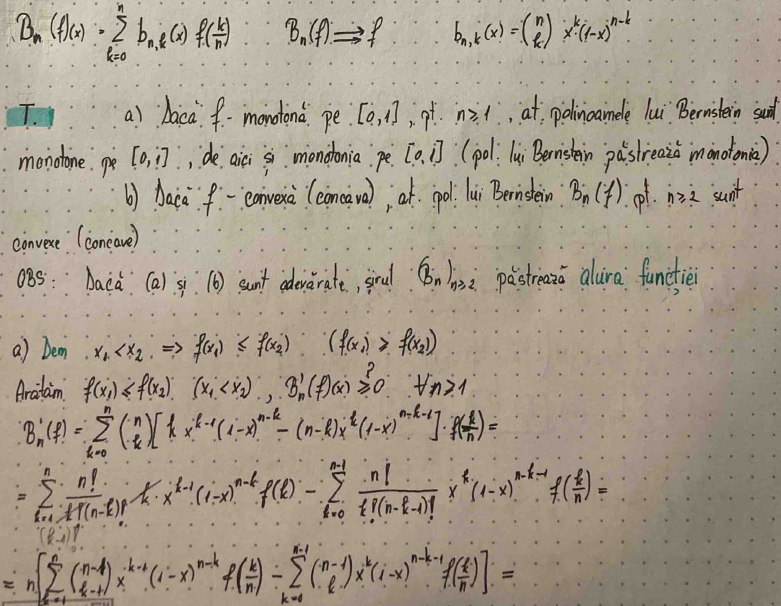 Bₙ(f)(x) = Σ_{k=0}^{n} b_{n,k}(x) f(k/n)    Bₙ(f) ⟹ f    b_{n,k}(x) = (n k) x^k (1-x)^{n-k}
T. a) Dacă f - monotonă pe [0,1], pt. n≥1, at. polinoamele lui Bernstein sunt
monotone pe [0,1], de aici și monotonia pe [0,1] (pol. lui Bernstein păstrează monotonia)
b) Dacă f - convexă (concavă), at. pol. lui Bernstein Bₙ(f) pt. n≥2 sunt
convexe (concave)
OBS: Dacă (a) și (b) sunt adevărate, șirul (Bₙ)_{n≥2} păstrează alura funcției
a) Dem x₁ < x₂ => f(x₁) ≤ f(x₂) (f(x₁) ≥ f(x₂))
Arătăm f(x₁) ≤ f(x₂) (x₁ < x₂), B'ₙ(f)(x) ≥? 0 ∀n≥1
B'ₙ(f) = Σ_{k=0}^{n} (n k) [k x^{k-1} (1-x)^{n-k} - (n-k) x^k (1-x)^{n-k-1}] · f(k/n) =
= Σ_{k=1}^{n} n!/(k!(n-k)!) k x^{k-1} (1-x)^{n-k} f(k) - Σ_{k=0}^{n-1} n!/(k!(n-k-1)!) x^k (1-x)^{n-k-1} f(k/n) =
(k-1)!
= n [Σ_{k=1}^{n} (n-1 k-1) x^{k-1} (1-x)^{n-k} f(k/n) - Σ_{k=0}^{n-1} (n-1 k) x^k (1-x)^{n-k-1} f(k/n)] =